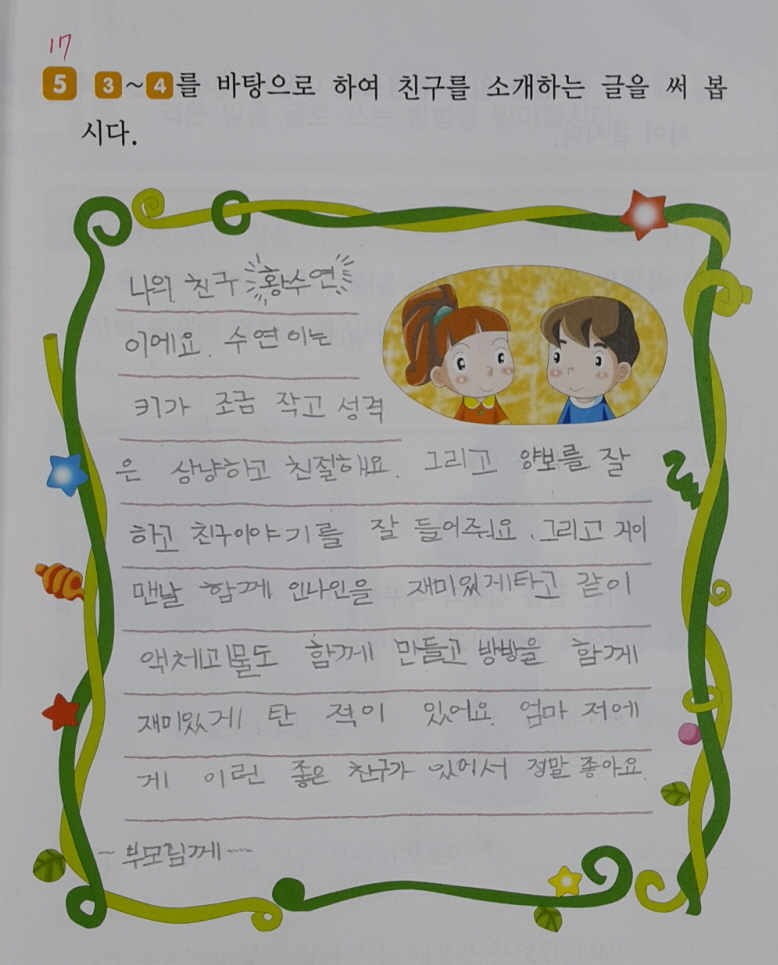 17
5 3~4를 바탕으로 하여 친구를 소개하는 글을 써 봅
시다.
나의 친구 황수연
이에요. 수연이는
키가 조금 작고 성격
은 상냥하고 친절해요. 그리고 양보를 잘
하고 친구이야기를 잘 들어줘요. 그리고
맨날 함께 인나인을 재미있게타고 같이
액체괴물도 함께 만들고 방방을 함께
재미있게 탄 적이 있어요. 엄마 저에
게 이런 좋은 친구가 있어서 정말 좋아요.
~부모님께~